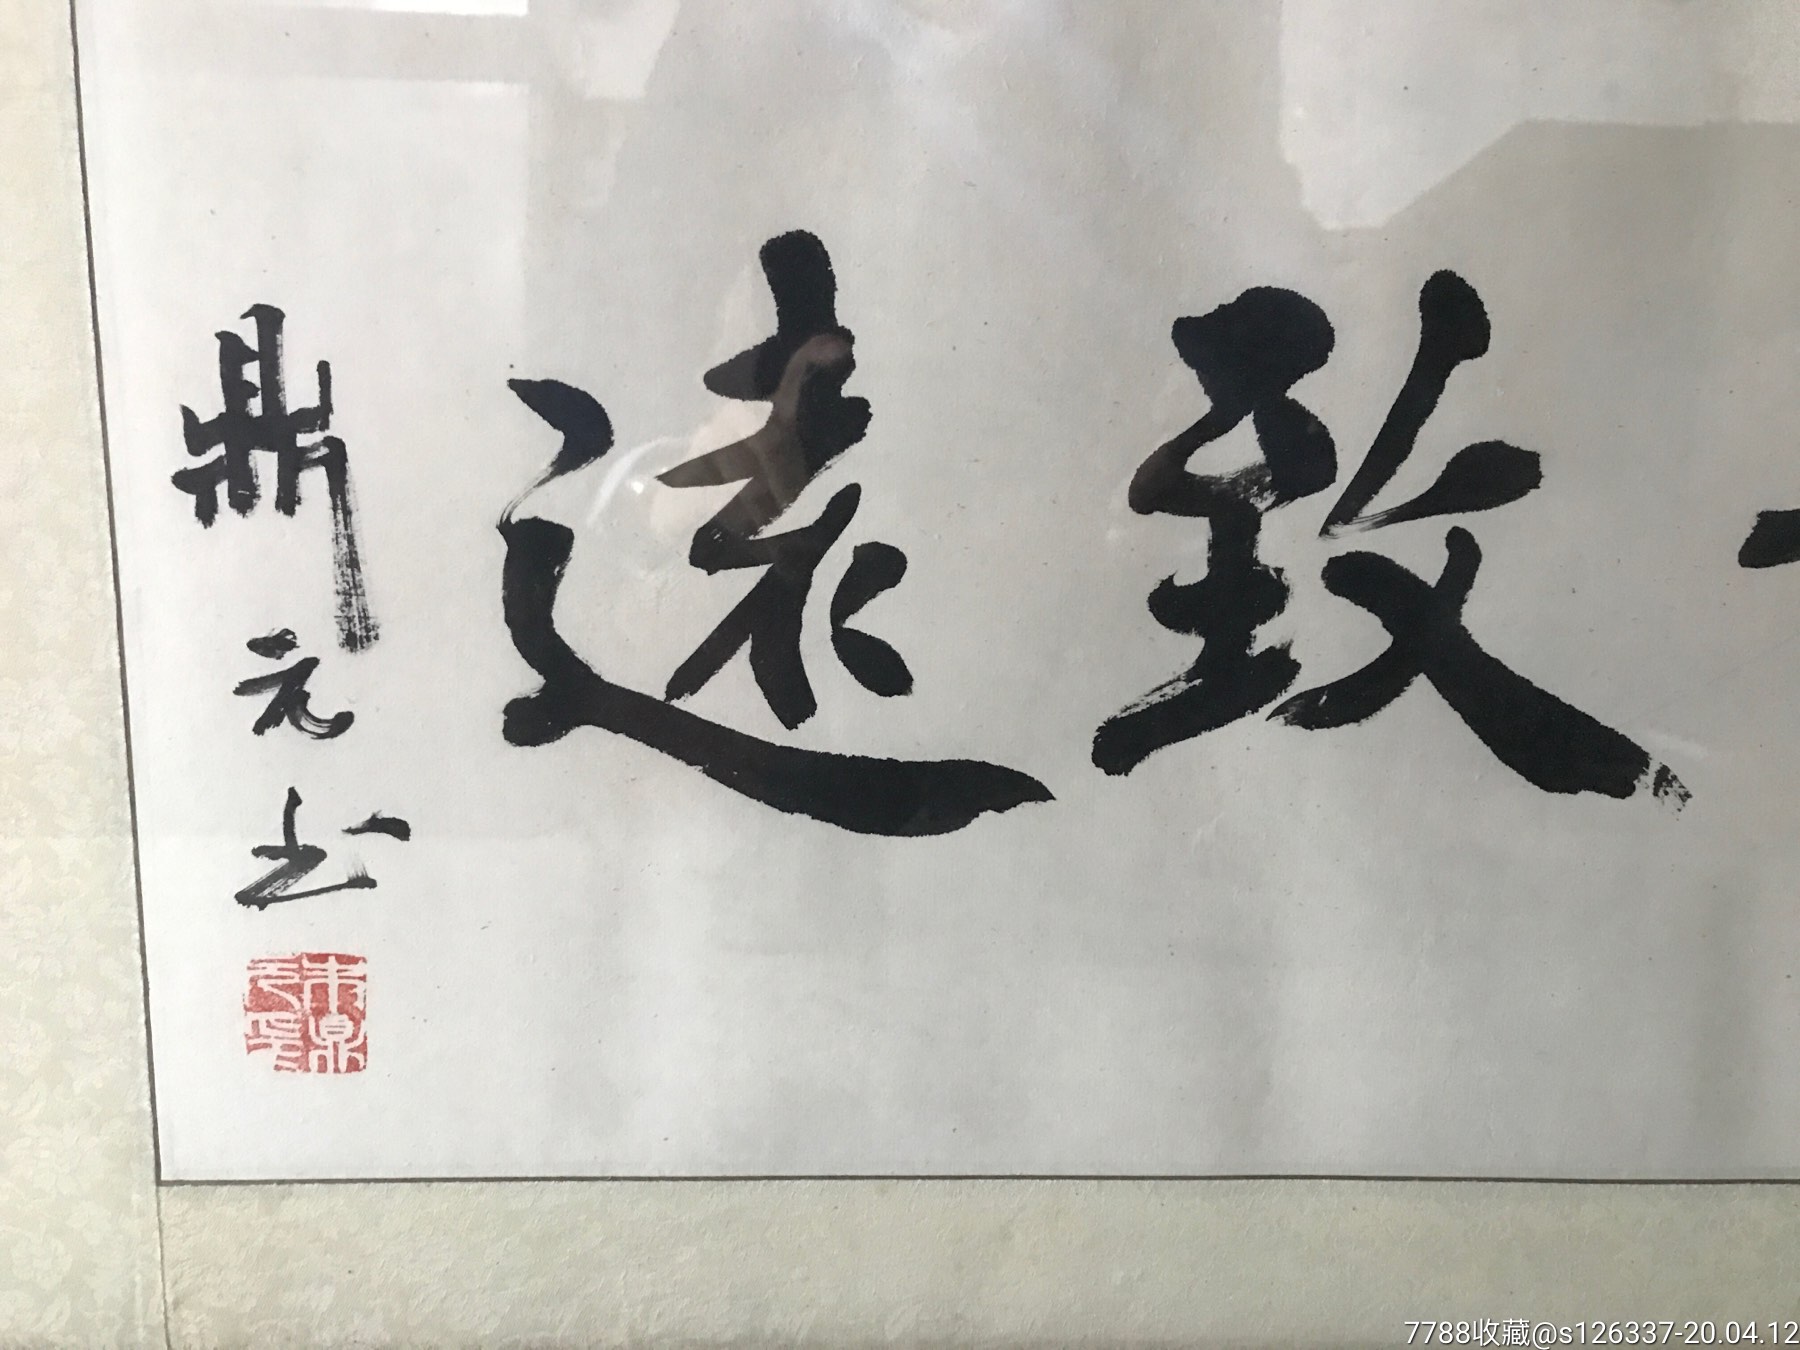 致遠
鼎元书
7788收藏@s126337-20.04.12